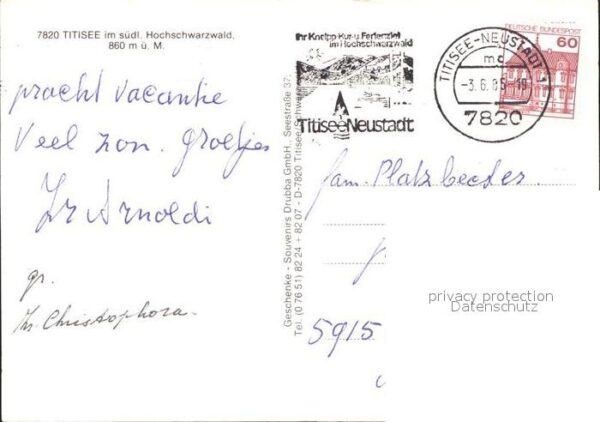 7820 TITISEE im südl. Hochschwarzwald,
860 m ü. M.
pracht vacantie
Veel zon. Groetjes
Zr Arnoldi
gr.
Zr. Christophora.
Geschenke - Souvenirs Drubba GmbH., Seestraße 37,
Tel. (0 76 51) 82 24 + 82 07 - D-7820 Titisee/Schwarzw.
Ihr Kneipp-Kur-u. Ferienziel
im Hochschwarzwald
TitiseeNeustadt
TITISEE-NEUSTADT
mc
-3.6.85-19
7820
DEUTSCHE BUNDESPOST
60
fam. Platzbecker
5915
privacy protection
Datenschutz